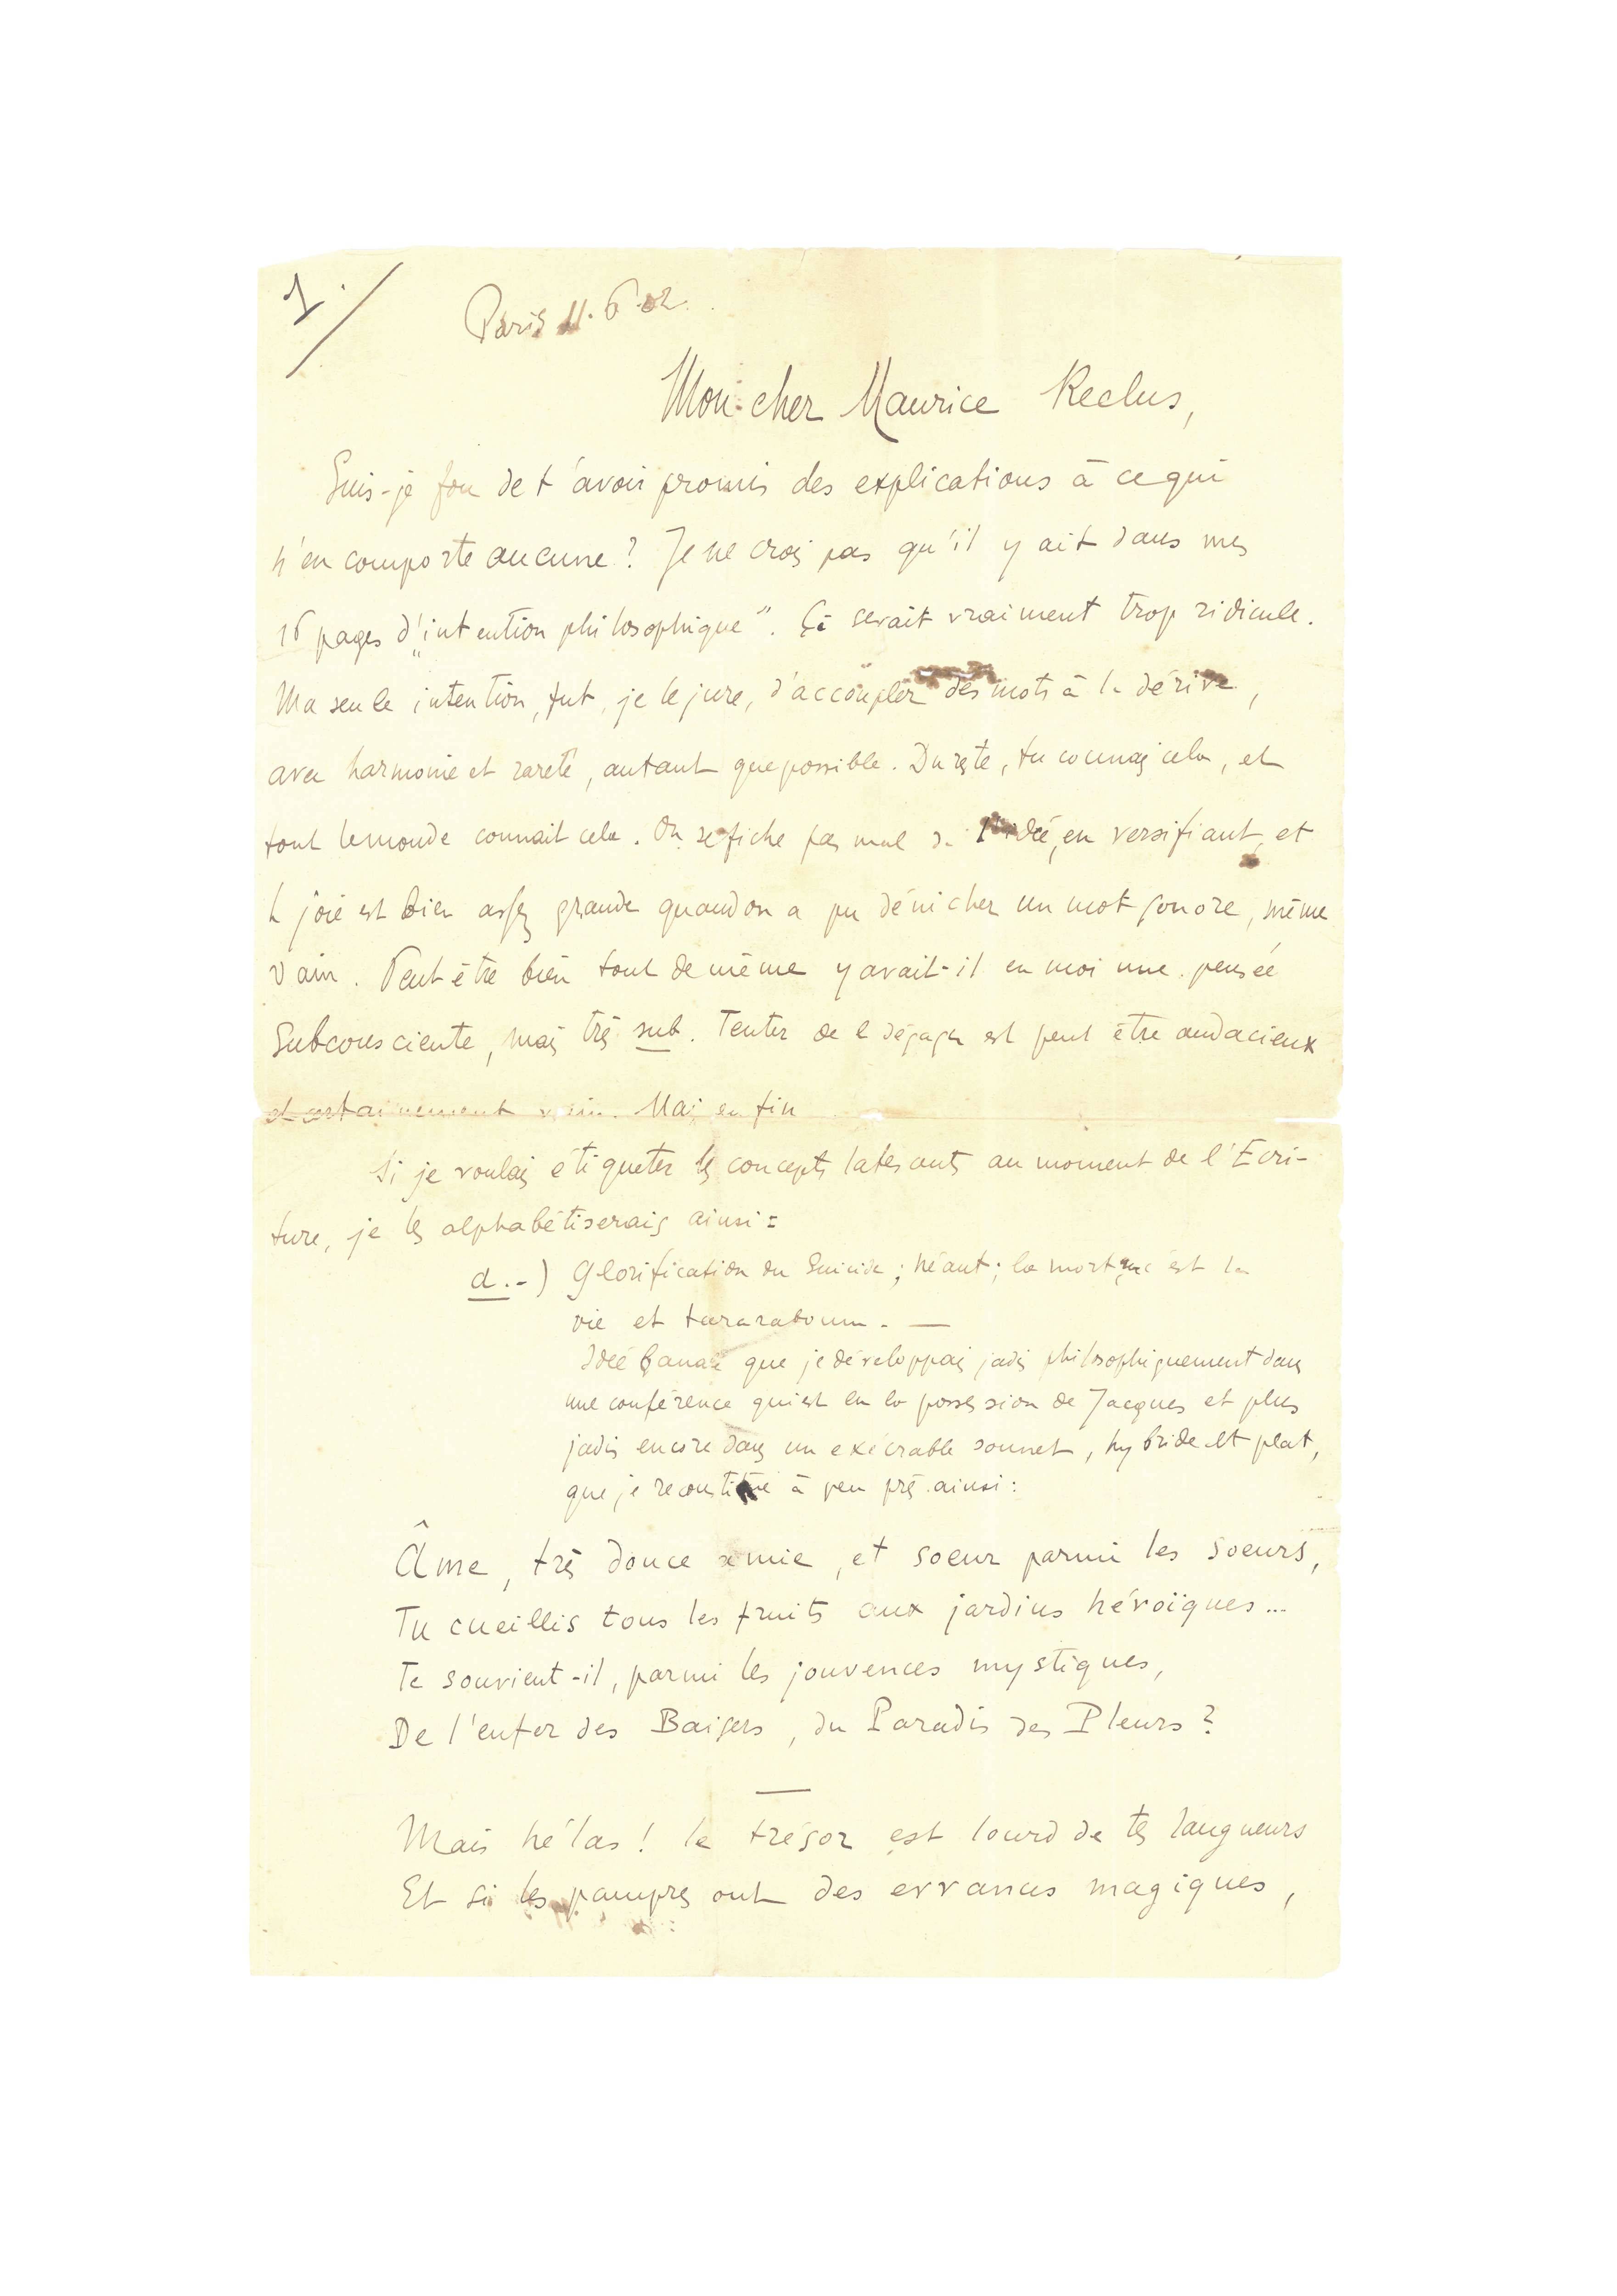 1.
Paris 11.6.02.
Mon cher Maurice Reclus,
Suis-je fou de t'avoir promis des explications à ce qui
n'en comporte aucune ? Je ne crois pas qu'il y ait dans mes
16 pages d'„intention philosophique”. Ça serait vraiment trop ridicule.
Ma seule intention, fut, je le jure, d'accoupler des mots à la dérive,
avec harmonie et rareté, autant que possible. Du reste, tu connais cela, et
tout le monde connait cela. On se fiche pas mal de l'Idée, en versifiant, et
la joie est bien assez grande quand on a pu dénicher un mot sonore, même
vain. Peut être bien tout de même y avait-il en moi une pensée
Subconsciente, mais très sub. Tenter de la dégager est peut être audacieux
et certainement vain. Mais enfin
Si je voulais étiqueter les concepts latescents au moment de l'Ecri-
ture, je les alphabétiserais ainsi :
a.-) Glorification du Suicide ; Néant ; la mort c'est la
vie et tararaboum. —
Idée banale que je développais jadis philosophiquement dans
une conférence qui est en la possession de Jacques et plus
jadis encore dans un exécrable sonnet, hybride et plat,
que je reconstitue à peu près ainsi :
Âme, très douce amie, et soeur parmi les soeurs,
Tu cueillis tous les fruits aux jardins héroïques...
Te souvient-il, parmi les jouvences mystiques,
De l'enfer des Baisers, du Paradis des Pleurs ?
Mais hélas ! le trésor est lourd de tes langueurs
Et si les pampres ont des errances magiques,